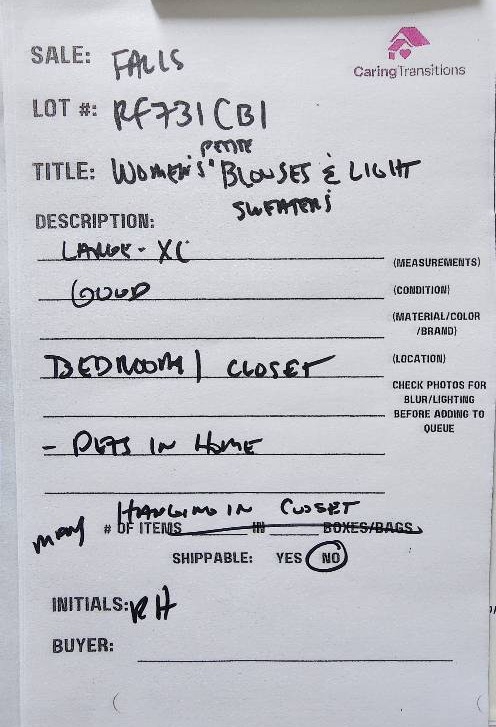 SALE: FALLS
CaringTransitions
LOT #: RF731CB1
PETITE
TITLE: WOMEN'S BLOUSES & LIGHT
SWEATERS
DESCRIPTION:
LARGE - XL
(MEASUREMENTS)
GOOD
(CONDITION)
(MATERIAL/COLOR
/BRAND)
BEDROOM 1 CLOSET
(LOCATION)
CHECK PHOTOS FOR
BLUR/LIGHTING
BEFORE ADDING TO
QUEUE
- PETS IN HOME
HANGING IN CLOSET
MANY # OF ITEMS IN BOXES/BAGS
SHIPPABLE: YES NO
INITIALS: RH
BUYER: